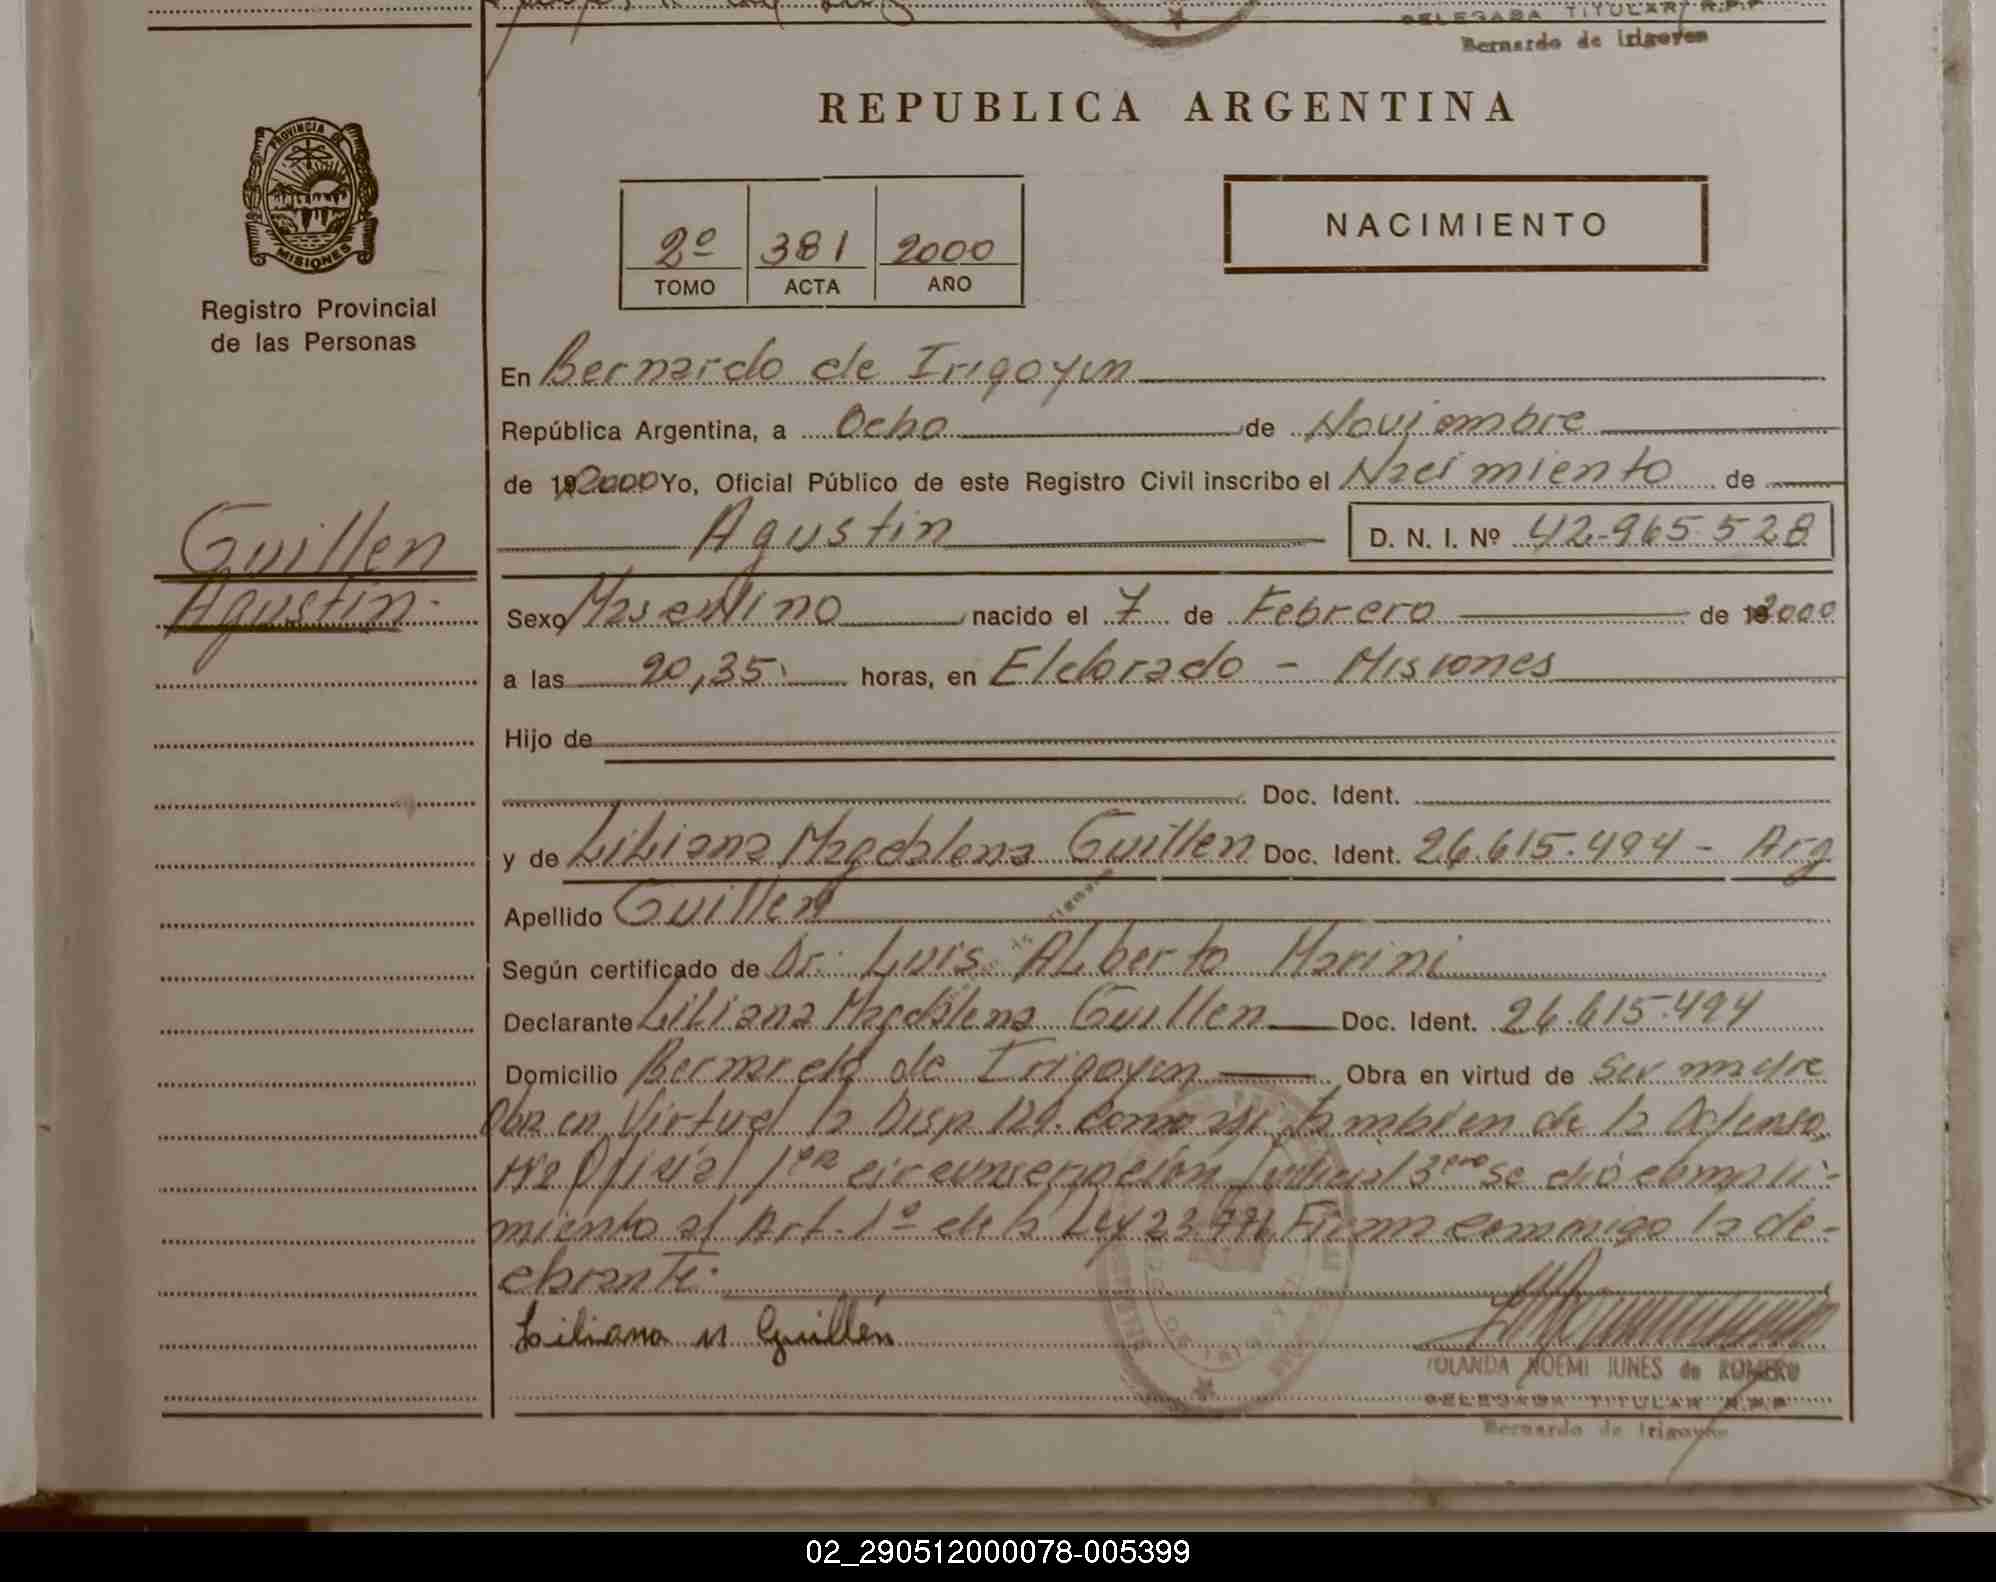 DELEGADA TITULAR R.P.P
Bernardo de Irigoyen
REPUBLICA ARGENTINA
PROVINCIA DE
MISIONES
Registro Provincial
de las Personas
2º 381 2000
TOMO ACTA AÑO
NACIMIENTO
En Bernardo de Irigoyen
República Argentina, a Ocho de Noviembre
de 192000 Yo, Oficial Público de este Registro Civil inscribo el Nacimiento de
Agustin D. N. I. Nº 42-965.528
Guillen
Agustin.
Sexo Masculino nacido el 7 de Febrero de 192000
a las 20,35 horas, en Eldorado - Misiones
Hijo de
Doc. Ident.
y de Liliana Magdalena Guillen Doc. Ident. 26.615.494 - Arg
Apellido Guillen
Según certificado de Dr. Luis Alberto Marini
Declarante Liliana Magdalena Guillen Doc. Ident. 26.615.494
Domicilio Bernardo de Irigoyen Obra en virtud de ser madre
Obra en Virtud la Disp 129. como asi tambien de la Defenso
ria Oficial 1era circunscripción Judicial se dió cumpli-
miento al Art. 1º de la Ley 23.776. Firma conmigo la de-
clarante.
Liliana M Guillén
YOLANDA NOEMI IUNES de ROMERO
DELEGADA TITULAR R.P.P
Bernardo de Irigoyen
02_290512000078-005399